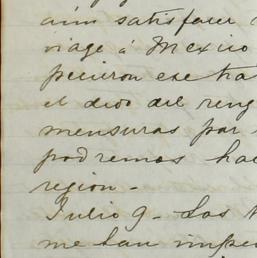 aún satisfacer
viage á Mexico
pecieron ese tra
el dios del reng
mensuras por
podremos hac
region.-
Julio 9.- Las
me han impe